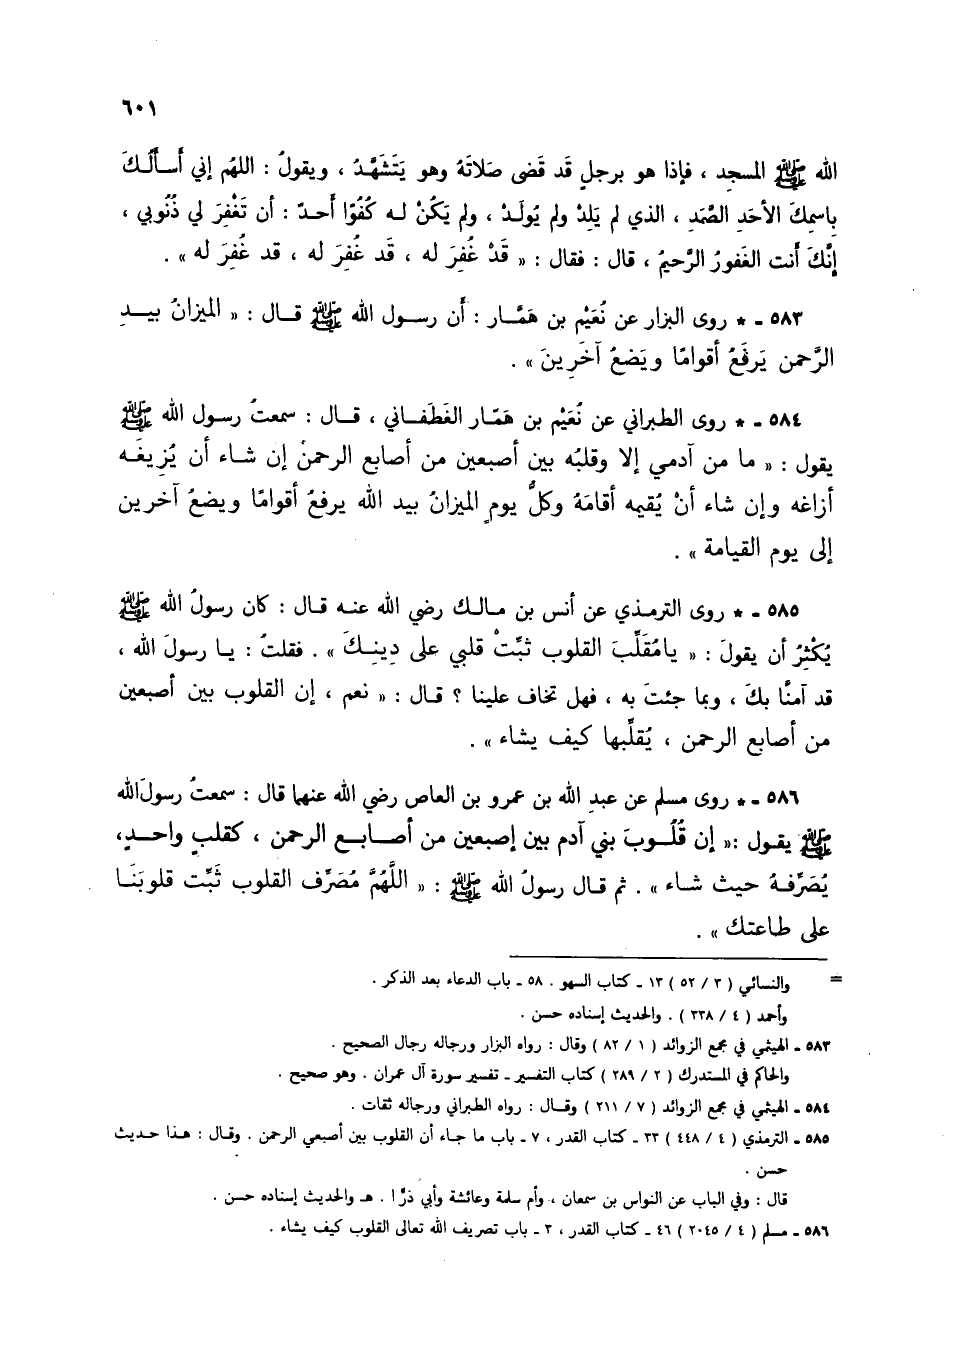 ٦٠١
الله ﷺ المسجد ، فإذا هو برجلٍ قَد قَضى صَلاتَهُ وهو يَتَشَهَّدُ ، ويقولُ : اللهُم إني أَسأَلُكَ
باسمِكَ الأحَدِ الصَّمَدِ ، الذي لم يَلِدْ ولم يُولَدْ ، ولم يَكُنْ له كُفُوًا أَحدٌ : أن تَغْفِرَ لي ذُنُوبي ،
إنَّكَ أنت الغَفورُ الرَّحيمُ ، قال : فقال : « قَدْ غُفِرَ له ، قَد غُفِرَ له ، قد غُفِرَ له » .
٥٨٣ - * روى البزار عن نُعَيْمِ بن هَمَّار : أن رسول الله ﷺ قال : « الميزانُ بيدِ
الرَّحمن يَرفَعُ أقوامًا ويَضعُ آخَرِينَ » .
٥٨٤ - * روى الطبراني عن نُعَيْمِ بن هَمّار الغَطَفاني ، قال : سمعتُ رسول الله ﷺ
يقول : « ما من آدمي إلا وقلبُه بين أصبعين من أصابع الرحمنِ إن شاء أن يُزيغَه
أزاغه وإن شاء أنْ يُقيمه أقامَهُ وكلُّ يومٍ الميزانُ بيد الله يرفعُ أقوامًا ويضعُ آخرين
إلى يوم القيامة » .
٥٨٥ - * روى الترمذي عن أنس بن مالك رضي الله عنه قال : كان رسولُ الله ﷺ
يُكْثِرُ أن يقولَ : « يامُقَلِّبَ القلوب ثَبِّتْ قلبي على دِينِكَ » . فقلتُ : يا رسولَ الله ،
قد آمنَّا بكَ ، وبما جئتَ به ، فهل تخاف علينا ؟ قال : « نعم ، إن القلوب بين أصبعين
من أصابع الرحمن ، يُقلِّبها كيف يشاء » .
٥٨٦ - * روى مسلم عن عبدِ الله بن عمرو بن العاص رضي الله عنهما قال : سمعتُ رسولَ الله
ﷺ يقول :« إن قُلُوبَ بني آدم بين إصبعين من أصابع الرحمن ، كقلبٍ واحدٍ،
يُصَرِّفهُ حيث شاء » . ثم قال رسولُ الله ﷺ : « اللَّهُمَّ مُصَرِّف القلوب ثَبِّت قلوبَنَا
على طاعتك » .
= والنسائي ( ٣ / ٥٢ ) ١٣ - كتاب السهو . ٥٨ - باب الدعاء بعد الذكر .
وأحمد ( ٤ / ٣٣٨ ) . والحديث إسناده حسن .
٥٨٣ - الهيثمي في مجمع الزوائد ( ١ / ٨٢ ) وقال : رواه البزار ورجاله رجال الصحيح .
والحاكم في المستدرك ( ٢ / ٢٨٩ ) كتاب التفسير - تفسير سورة آل عمران . وهو صحيح .
٥٨٤ - الهيثمي في مجمع الزوائد ( ٧ / ٢١١ ) وقال : رواه الطبراني ورجاله ثقات .
٥٨٥ - الترمذي ( ٤ / ٤٤٨ ) ٣٣ - كتاب القدر ، ٧ - باب ما جاء أن القلوب بين أصبعي الرحمن . وقال : هذا حديث
حسن .
قال : وفي الباب عن النواس بن سمعان ، وأم سلمة وعائشة وأبي ذرٍّ ا . هـ والحديث إسناده حسن .
٥٨٦ - مسلم ( ٤ / ٢٠٤٥ ) ٤٦ - كتاب القدر ، ٣ - باب تصريف الله تعالى القلوب كيف يشاء .